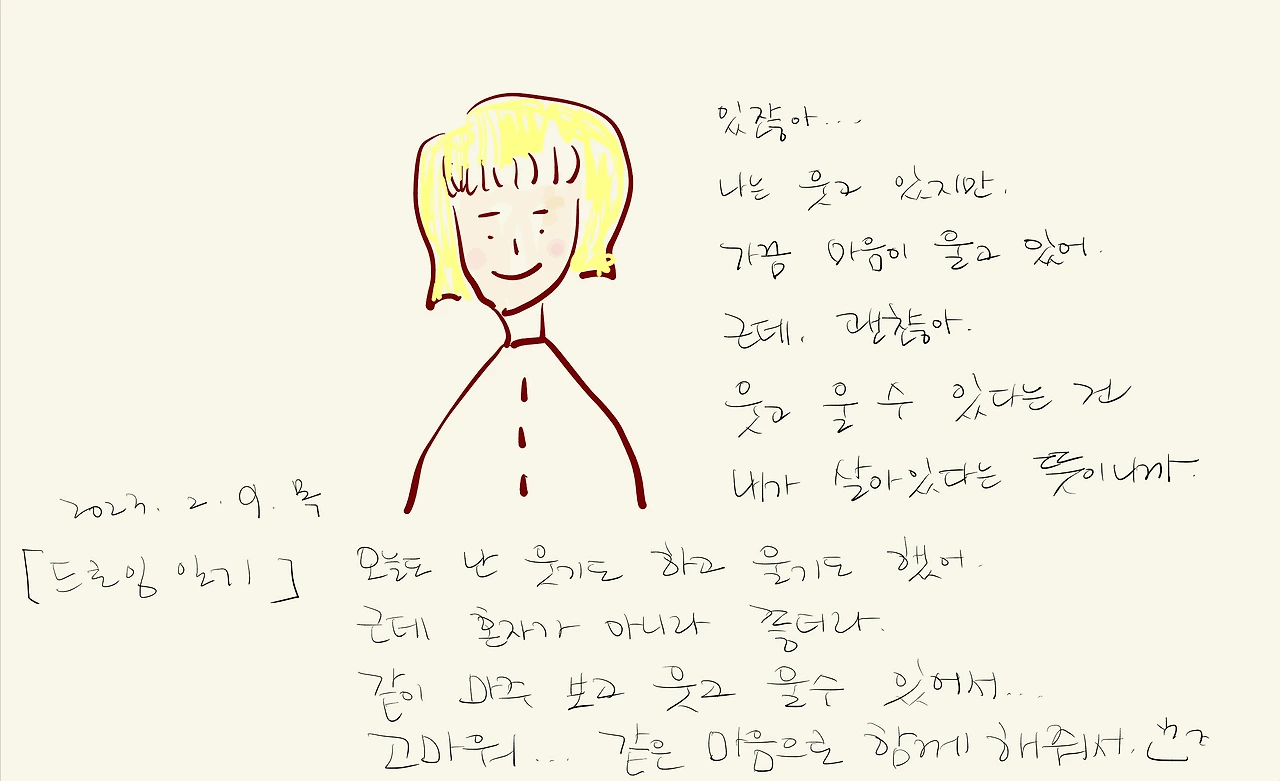 있잖아...
나는 웃고 있지만.
가끔 마음이 울고 있어.
근데. 괜찮아.
웃고 울 수 있다는 건
내가 살아있다는 뜻이니까.
2023. 2. 9. 목
[드로잉 일기]
오늘도 난 웃기도 하고 울기도 했어.
근데 혼자가 아니라 좋더라.
같이 마주 보고 웃고 울수 있어서...
고마워... 같은 마음으로 함께 해줘서.